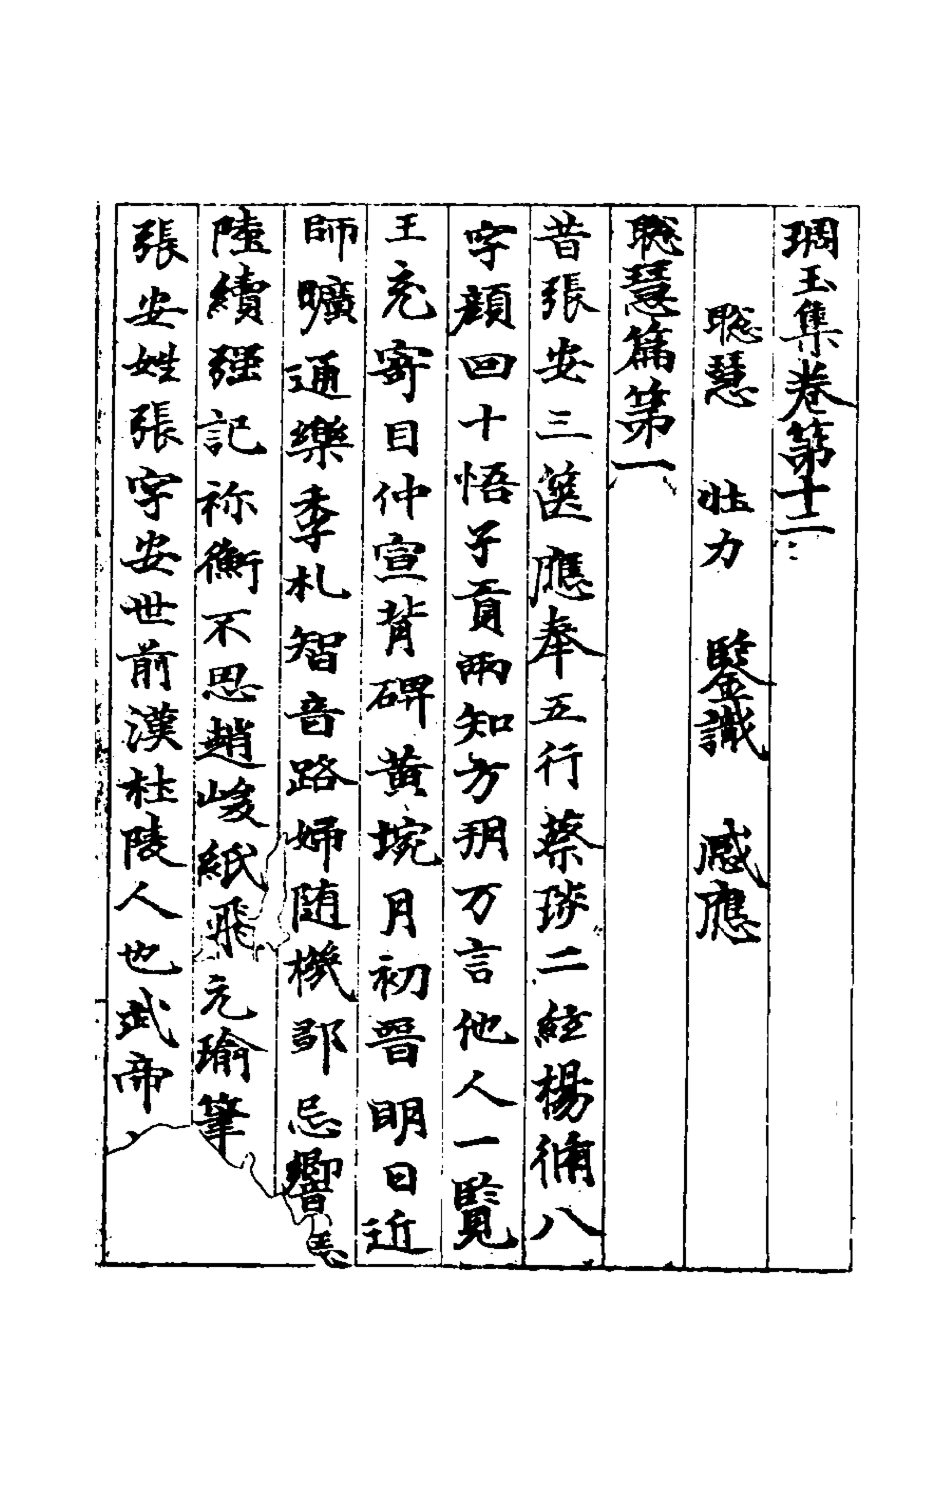 琱玉集卷第十二
聡慧 壮力 鑒識 感應
聡慧篇第一
昔張安三篋應奉五行蔡琰二經楊脩八
字顔回十悟子貢兩知方朔万言他人一覽
王充寄目仲宣背碑黄琬月初晉明日近
師曠通樂季札智音路婦随機郎忌響
陸續强記祢衡不思趙峻紙飛元瑜筆
張安姓張字安世前漢杜陵人也武帝